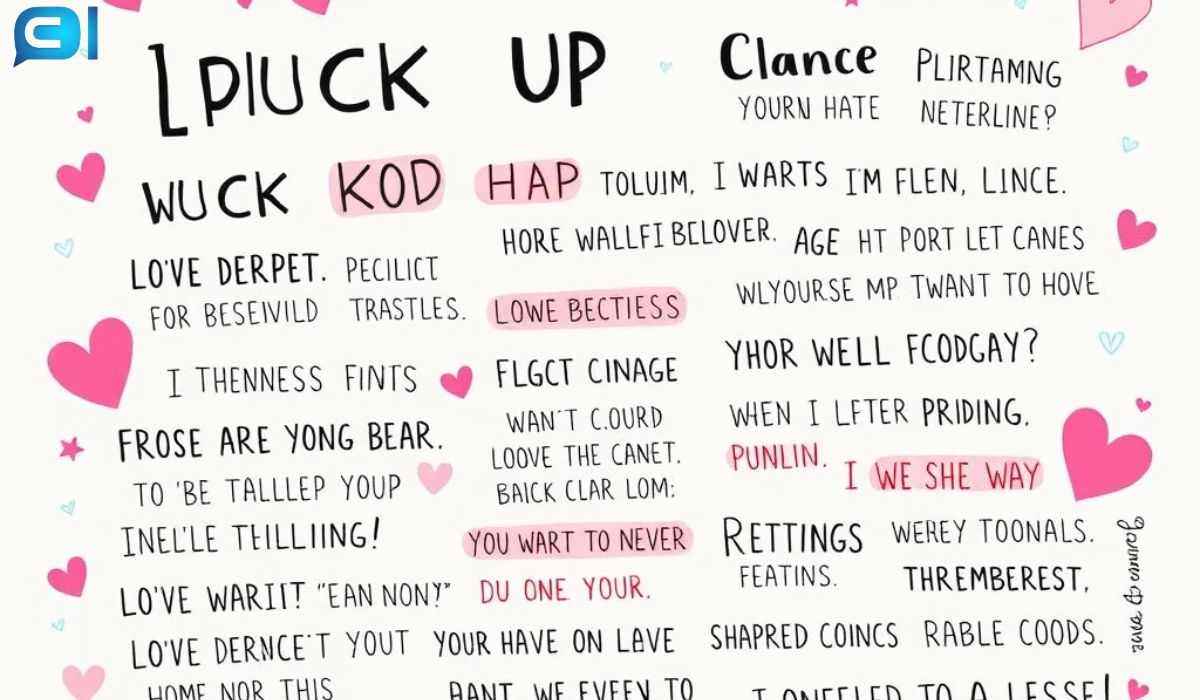 [ PIUCK UP
Clance PLIRTAMNG
YOURN HATE NETERLINE?
WUCK KOD HAP TOLUIM, I WARTS I'M FLEN, LINCE.
HORE WALLFI BELOVER. AGE HT PORT LET CANES
LO'VE DERPET. PECILICT
FOR BESEIVILD TRASTLES. LOWE BECTIESS
WLYOURSE MP TWANT TO HOVE
I THENNESS FINTS
FLGCT CINAGE
YHOR WELL FCODGAY?
FROSE ARE YONG BEAR.
WAN'T C.OURD
LOOVE THE CANET.
BAICK CLAR LOM:
WHEN I LFTER PRIDING,
PUNLIN. I WE SHE WAY
TO 'BE TALLLEP YOUP
INEL'LE TEILLIING!
YOU WART TO NEVER
DU ONE YOUR.
RETTINGS WEREY TOONALS.
FEATINS. THREMBEREST,
LO'VE WARIIT "EAN NONY"
LO'VE DERNCE'T YOUT YOUR HAVE ON LAVE SHAPRED COINCS RABLE COODS.
HOME NOR THIS
WE EVEEN TO
I ONEELED TO A LESSE!